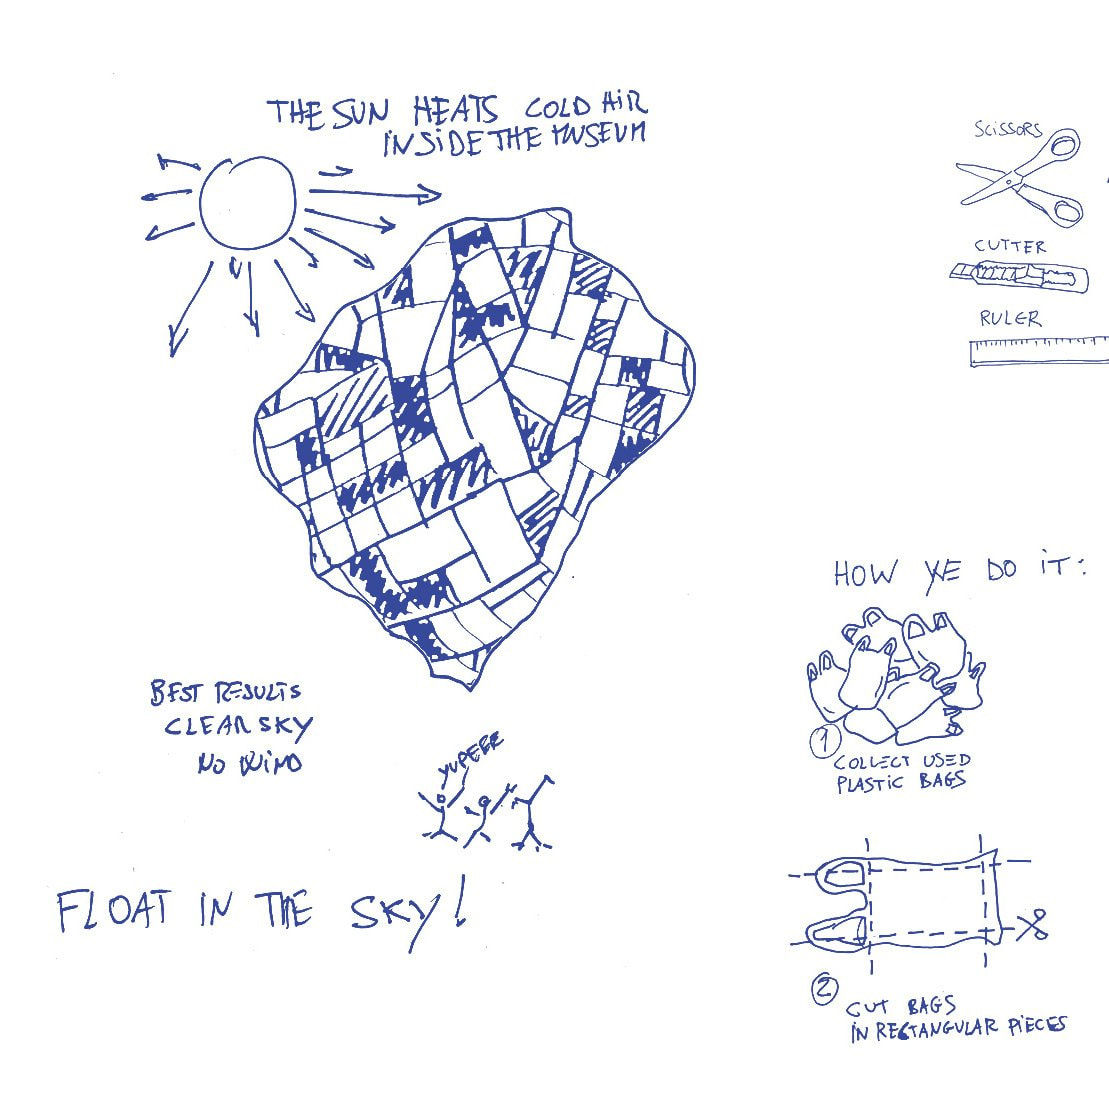 THE SUN HEATS COLD AIR
INSIDE THE MUSEUM
SCISSORS
CUTTER
RULER
BEST RESULTS
CLEAR SKY
NO WIND
YUPEEE
FLOAT IN THE SKY!
HOW WE DO IT:
1
COLLECT USED
PLASTIC BAGS
2
CUT BAGS
IN RECTANGULAR PIECES